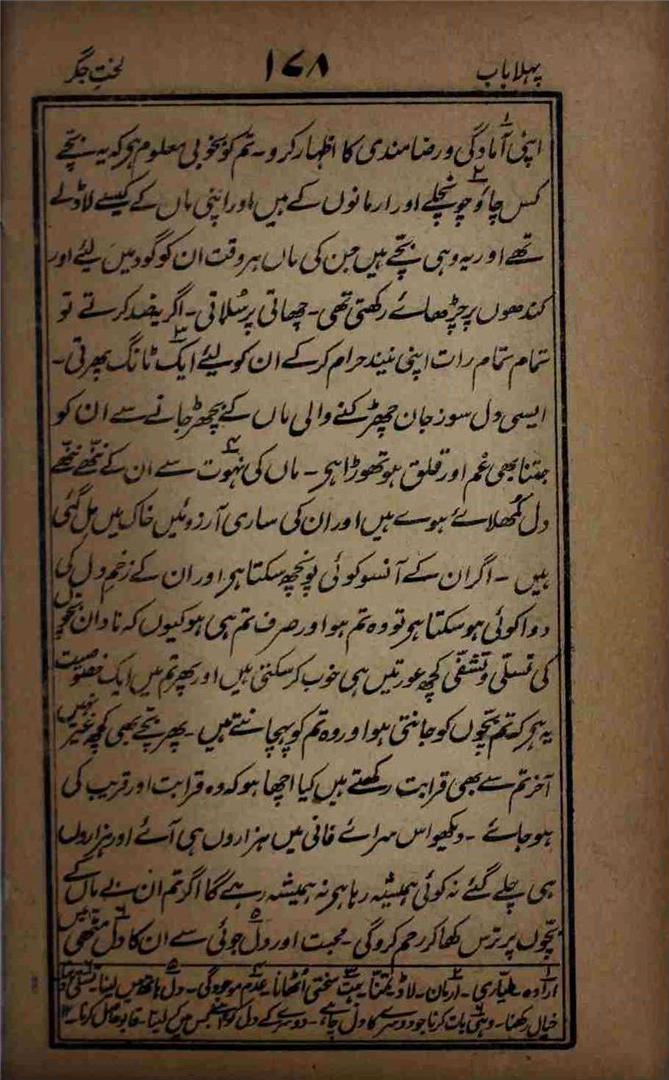 پہلا باب ۱۷۸ لختِ جگر
اپنی آمادگی۱ و رضامندی کا اظہار کرو۔ تم کو بخوبی معلوم ہو کہ یہ بچّے
کس چاؤ چونچلے۲ اور ارمانوں کے ہیں اور اپنی ماں کے کیسے لاڈلے
تھے اور یہ وہی بچّے ہیں جن کی ماں ہر وقت ان کو گود میں لیئے اور
کندھوں پر چڑھائے رکھتی تھی۔ چھاتی پر سُلاتی۔ اگر یہ ضد کرتے تو
تمام تمام رات اپنی نیند حرام کر کے ان کو لیئے ایک ٹانگ۳ پھرتی۔
ایسی دل سوز جان چھڑکنے والی ماں کے بچھڑ جانے سے ان کو
جتنا بھی غم اور قلق ہو تھوڑا ہو۔ ماں کی نہوت۴ سے ان کے ننھے ننھے
دل کُمھلائے ہوے ہیں اور ان کی ساری آرزوئیں خاک میں مل گئی
ہیں۔ اگر ان کے آنسو کوئی پونچھ سکتا ہو اور ان کے زخمِ دل کی
دوا کوئی ہو سکتا ہو تو وہ تم ہو اور صرف تم ہی ہو کیوں کہ نادان بچّوں
کی تسلّی و تشفّی کچھ عورتیں ہی خوب کر سکتی ہیں اور پھر تم میں ایک خصوصیت
یہ ہو کہ تم بچّوں کو جانتی ہو اور وہ تم کو پہچانتے ہیں۔ پھر بچّے بھی کچھ غیر نہیں
آخر تم سے بھی قرابت رکھتے ہیں کیا اچھا ہو کہ وہ قرابت اور قریب کی
ہو جائے۔ دیکھو اس سرائے فانی میں ہزاروں ہی آئے اور ہزاروں
ہی چلے گئے نہ کوئی ہمیشہ رہا ہو نہ ہمیشہ رہے گا اگر تم ان بے ماں کے
بچّوں پر ترس کھا کر رحم کرو گی۔ محبت اور دل جوئی۵ سے ان کا دل مٹھی۶ میں
۱ ارادہ۔ طیاری۔ ۲ ارمان۔ لاڈ۔ ۳ بہت سختی اُٹھانا۔ ۴ عدم موجودگی۔ ۵ دل ہاتھ میں لینا۔ تسلّی
خیال رکھنا۔ وہی بات کرنا جو دوسرے کا دل چاہے۔ ۶ دوسرے کے دل کو بس میں کر لینا۔ قابو حاصل کرنا۔ ۱۲